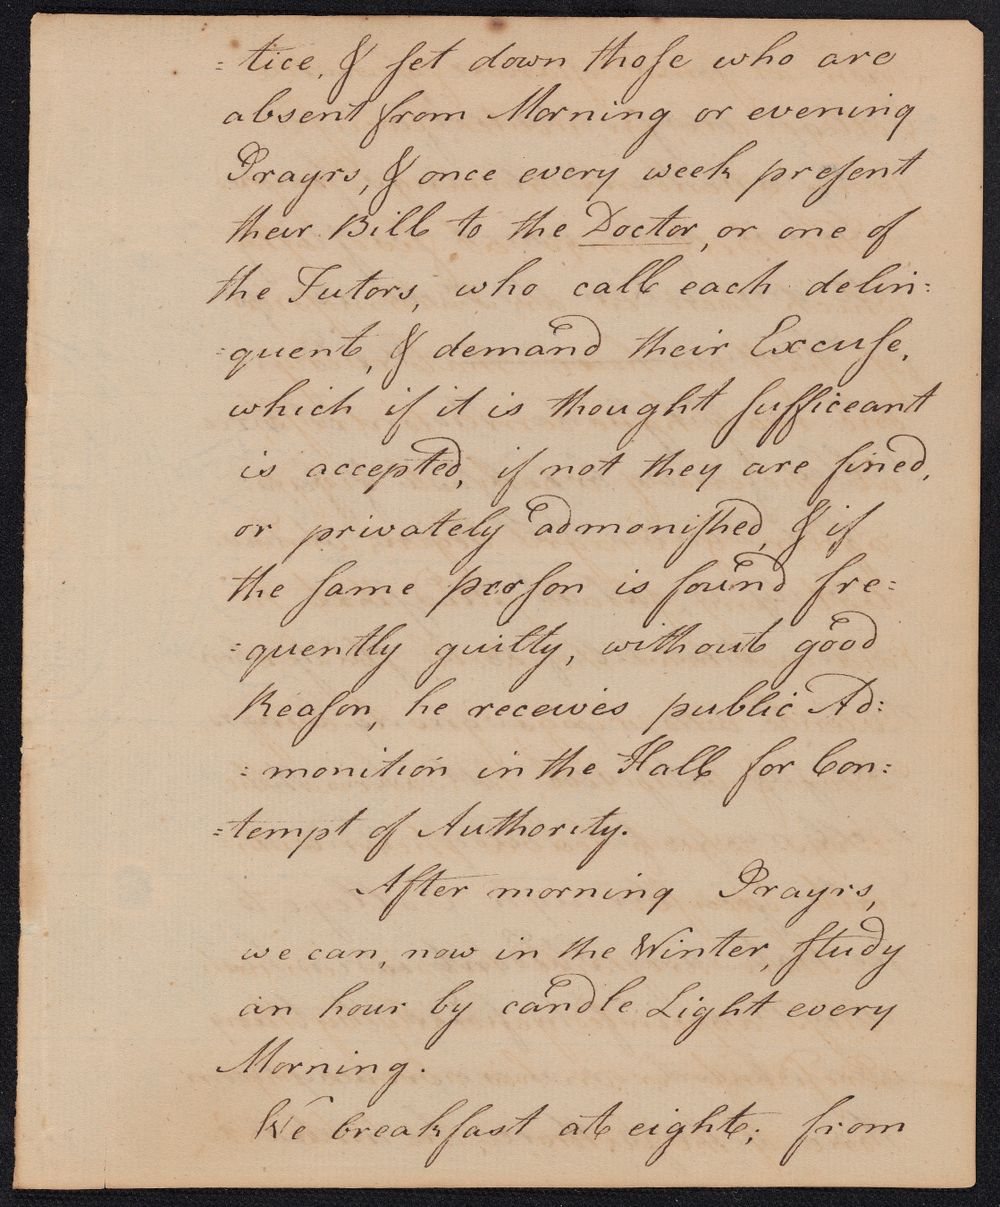 :tice, & set down those who are
absent from Morning or evening
Prayrs, & once every week present
their Bill to the Doctor, or one of
the Tutors, who call each delin:
:quent, & demand their Excuse,
which if it is thought sufficeant
is accepted, if not they are fined,
or privately admonished, & if
the same person is found fre:
:quently guilty, without good
Reason, he receives public Ad:
:monition in the Hall for Con:
:tempt of Authority.
After morning Prayrs,
we can, now in the Winter, study
an hour by candle Light every
Morning.
We breakfast at eight; from